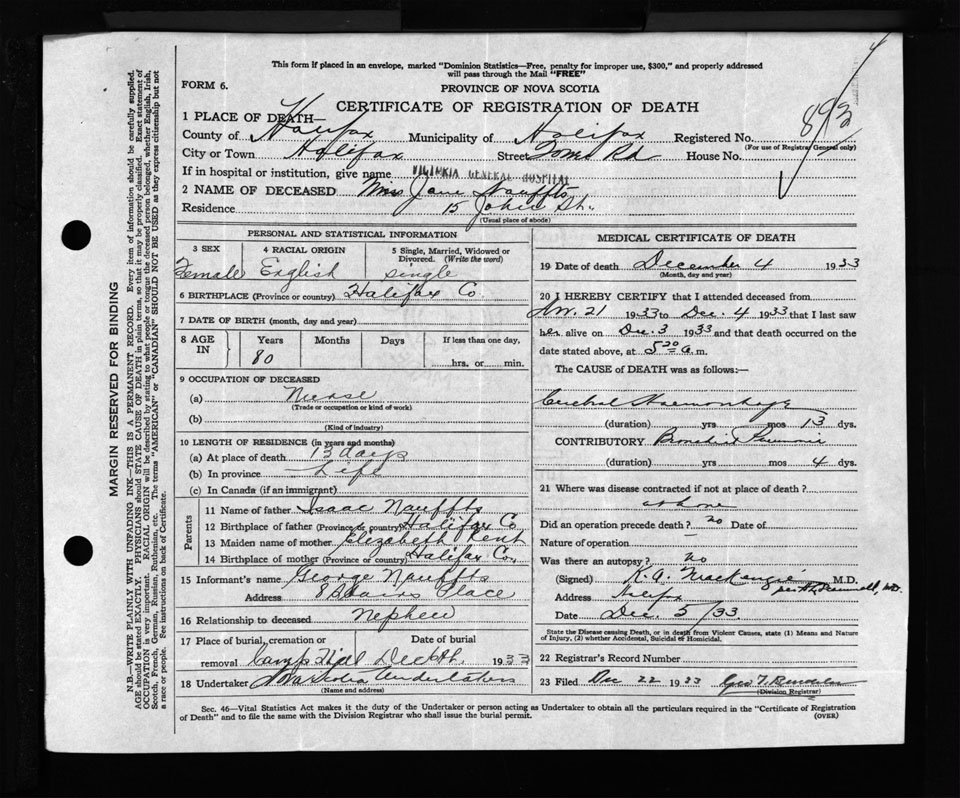 This form if placed in an envelope, marked "Dominion Statistics—Free, penalty for improper use, $300," and properly addressed
will pass through the Mail "FREE"
FORM 6.
PROVINCE OF NOVA SCOTIA
CERTIFICATE OF REGISTRATION OF DEATH
1 PLACE OF DEATH—
County of Halifax Municipality of Halifax Registered No. 893
(For use of Registrar General only)
City or Town Halifax Street House No.
If in hospital or institution, give name VICTORIA GENERAL HOSPITAL
2 NAME OF DECEASED Miss Jane Nauffts
Residence 15 John St.
(Usual place of abode)
PERSONAL AND STATISTICAL INFORMATION
3 SEX 4 RACIAL ORIGIN 5 Single, Married, Widowed or
Divorced. (Write the word)
Female English single
6 BIRTHPLACE (Province or country) Halifax Co.
7 DATE OF BIRTH (month, day and year)
8 AGE IN Years Months Days If less than one day,
80 hrs. or min.
9 OCCUPATION OF DECEASED
(a) Nurse
(Trade or occupation or kind of work)
(b)
(Kind of industry)
10 LENGTH OF RESIDENCE (in years and months)
(a) At place of death 13 days
(b) In province Life
(c) In Canada (if an immigrant)
Parents
11 Name of father Isaac Nauffts
12 Birthplace of father (Province or country) Halifax Co
13 Maiden name of mother Elizabeth Kent
14 Birthplace of mother (Province or country) Halifax Co,
15 Informant's name George Nauffts
Address Place
16 Relationship to deceased Nephew
17 Place of burial, cremation or Date of burial
removal Camp Hill Dec 1933
18 Undertaker Undertakers
(Name and address)
MEDICAL CERTIFICATE OF DEATH
19 Date of death December 4 1933
(Month, day and year)
20 I HEREBY CERTIFY that I attended deceased from
Nov. 21 1933 to Dec. 4 1933 that I last saw
her alive on Dec. 3 1933 and that death occurred on
date stated above, at 5 30 a. m.
The CAUSE of DEATH was as follows:—
Cerebral Haemorrhage
(duration) yrs mos 13 dys.
CONTRIBUTORY Bronchial Pneumonia
(duration) yrs mos 4 dys.
21 Where was disease contracted if not at place of death?
at home
Did an operation precede death? no Date of
Nature of operation
Was there an autopsy? no
(Signed) K. A. MacKenzie M.D.
Address Halifax
Date Dec. 5/33
State the Disease causing Death, or in death from Violent Causes, state (1) Means and Nature
of Injury, (2) whether Accidental, Suicidal or Homicidal.
22 Registrar's Record Number
23 Filed Dec 22 1933
(Division Registrar)
Sec. 46—Vital Statistics Act makes it the duty of the Undertaker or person acting as Undertaker to obtain all the particulars required in the "Certificate of Registration
of Death" and to file the same with the Division Registrar who shall issue the burial permit.
(OVER)
MARGIN RESERVED FOR BINDING
N.B.—WRITE PLAINLY WITH UNFADING INK—THIS IS A PERMANENT RECORD. Every item of information should be carefully supplied.
AGE should be stated EXACTLY. PHYSICIANS should STATE CAUSE OF DEATH in plain terms, so that it may be properly classified. Exact statement of
OCCUPATION is very important. RACIAL ORIGIN will be described by stating to what people or tongue the deceased person belonged, whether English, Irish,
Scotch, French, German, Russian, Ruthenian, etc. The terms "AMERICAN" or "CANADIAN" SHOULD NOT BE USED as they express citizenship but not
a race or people. See instructions on back of Certificate.